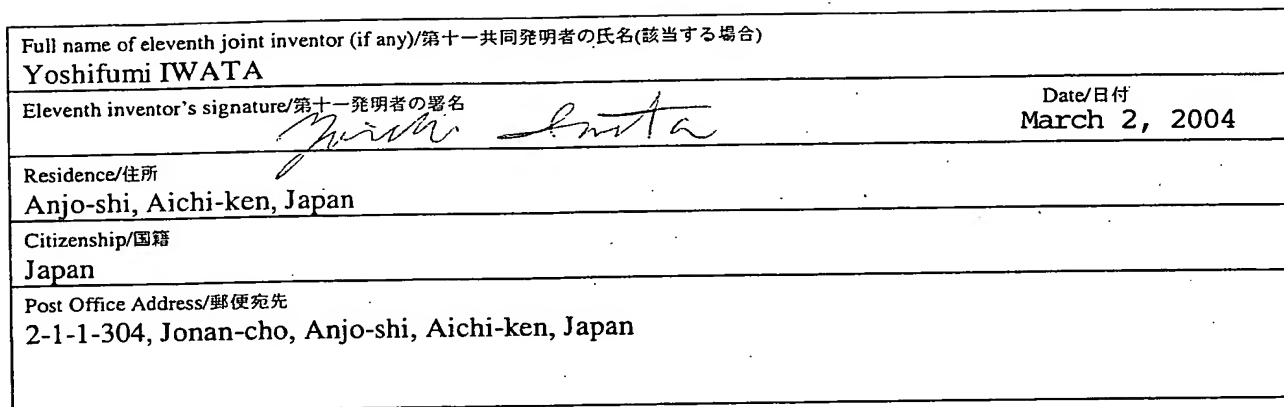 Full name of eleventh joint inventor (if any)/第十一共同発明者の氏名(該当する場合)
Yoshifumi IWATA
Eleventh inventor's signature/第十一発明者の署名
Date/日付
March 2, 2004
Residence/住所
Anjo-shi, Aichi-ken, Japan
Citizenship/国籍
Japan
Post Office Address/郵便宛先
2-1-1-304, Jonan-cho, Anjo-shi, Aichi-ken, Japan